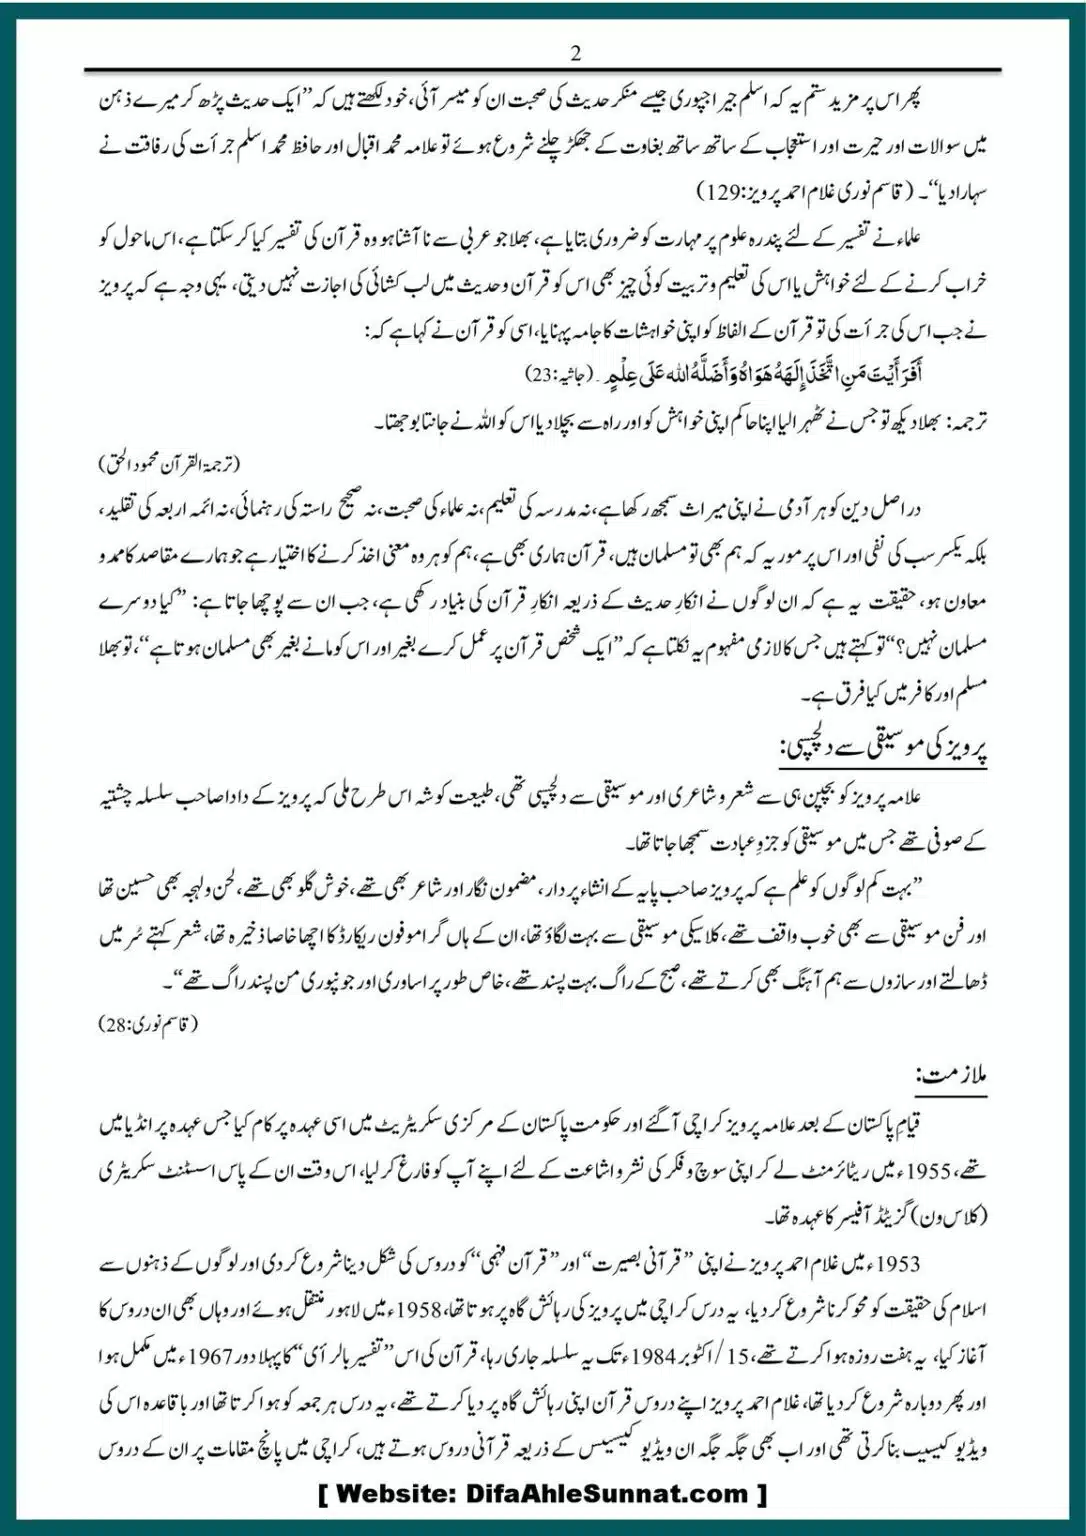 2
پھر اس پر مزید ستم یہ کہ اسلم جیراجپوری جیسے منکر حدیث کی صحبت ان کو میسر آئی، خود لکھتے ہیں کہ ’’ایک حدیث پڑھ کر میرے ذہن
میں سوالات اور حیرت اور استعجاب کے ساتھ ساتھ بغاوت کے جھکڑ چلنے شروع ہوئے تو علامہ محمد اقبال اور حافظ محمد اسلم جرأت کی رفاقت نے
سہارا دیا‘‘۔ (قاسم نوری غلام احمد پرویز:129)
علماء نے تفسیر کے لئے پندرہ علوم پر مہارت کو ضروری بتایا ہے، بھلا جو عربی سے نا آشنا ہو وہ قرآن کی تفسیر کیا کر سکتا ہے، اس ماحول کو
خراب کرنے کے لئے خواہش یا اس کی تعلیم و تربیت کوئی چیز بھی اس کو قرآن و حدیث میں لب کشائی کی اجازت نہیں دیتی، یہی وجہ ہے کہ پرویز
نے جب اس کی جرأت کی تو قرآن کے الفاظ کو اپنی خواہشات کا جامہ پہنایا، اسی کو قرآن نے کہا ہے کہ:
أَفَرَأَيْتَ مَنِ اتَّخَذَ إِلَهَهُ هَوَاهُ وَأَضَلَّهُ الله عَلَى عِلْمٍ۔ (جاثیہ:23)
ترجمہ: بھلا دیکھ تو جس نے ٹھہر الیا اپنا حاکم اپنی خواہش کو اور راہ سے بچلا دیا اس کو اللہ نے جانتا بوجھتا۔
(ترجمۃ القرآن محمود الحق)
در اصل دین کو ہر آدمی نے اپنی میراث سمجھ رکھا ہے، نہ مدرسہ کی تعلیم، نہ علماء کی صحبت، نہ صحیح راستہ کی رہنمائی، نہ ائمہ اربعہ کی تقلید،
بلکہ یکسر سب کی نفی اور اس پر مور یہ کہ ہم بھی تو مسلمان ہیں، قرآن ہماری بھی ہے، ہم کو ہر وہ معنی اخذ کرنے کا اختیار ہے جو ہمارے مقاصد کا ممد و
معاون ہو، حقیقت یہ ہے کہ ان لوگوں نے انکارِ حدیث کے ذریعہ انکارِ قرآن کی بنیاد رکھی ہے، جب ان سے پوچھا جاتا ہے: ’’کیا دوسرے
مسلمان نہیں؟‘‘ تو کہتے ہیں جس کا لازمی مفہوم یہ نکلتا ہے کہ ’’ایک شخص قرآن پر عمل کرے بغیر اور اس کو مانے بغیر بھی مسلمان ہوتا ہے‘‘، تو بھلا
مسلم اور کافر میں کیا فرق ہے۔
پرویز کی موسیقی سے دلچسپی:
علامہ پرویز کو بچپن ہی سے شعر و شاعری اور موسیقی سے دلچسپی تھی، طبیعت کو شہ اس طرح ملی کہ پرویز کے دادا صاحب سلسلہ چشتیہ
کے صوفی تھے جس میں موسیقی کو جزوِ عبادت سمجھا جاتا تھا۔
’’بہت کم لوگوں کو علم ہے کہ پرویز صاحب پایہ کے انشاء پردار، مضمون نگار اور شاعر بھی تھے، خوش گلو بھی تھے، لحن و لہجہ بھی حسین تھا
اور فن موسیقی سے بھی خوب واقف تھے، کلاسیکی موسیقی سے بہت لگاؤ تھا، ان کے ہاں گراموفون ریکارڈ کا اچھا خاصا ذخیرہ تھا، شعر کہتے سُر میں
ڈھالتے اور سازوں سے ہم آہنگ بھی کرتے تھے، صبح کے راگ بہت پسند تھے، خاص طور پر اساوری اور جونپوری من پسند راگ تھے‘‘۔
(قاسم نوری:28)
ملازمت:
قیامِ پاکستان کے بعد علامہ پرویز کراچی آگئے اور حکومت پاکستان کے مرکزی سکریٹریٹ میں اسی عہدہ پر کام کیا جس عہدہ پر انڈیا میں
تھے، 1955ء میں ریٹائرمنٹ لے کر اپنی سوچ و فکر کی نشر و اشاعت کے لئے اپنے آپ کو فارغ کر لیا، اس وقت ان کے پاس اسسٹنٹ سکریٹری
(کلاس ون) گزیٹڈ آفیسر کا عہدہ تھا۔
1953ء میں غلام احمد پرویز نے اپنی ’’قرآنی بصیرت‘‘ اور ’’قرآن فہمی‘‘ کو دروس کی شکل دینا شروع کر دی اور لوگوں کے ذہنوں سے
اسلام کی حقیقت کو محو کرنا شروع کر دیا، یہ درس کراچی میں پرویز کی رہائش گاہ پر ہوتا تھا، 1958ء میں لاہور منتقل ہوئے اور وہاں بھی ان دروس کا
آغاز کیا، یہ ہفت روزہ ہوا کرتے تھے، 15/اکتوبر 1984ء تک یہ سلسلہ جاری رہا، قرآن کی اس ’’تفسیر بالرأی‘‘ کا پہلا دور 1967ء میں مکمل ہوا
اور پھر دوبارہ شروع کر دیا تھا، غلام احمد پرویز اپنے دروس قرآن اپنی رہائش گاہ پر دیا کرتے تھے، یہ درس ہر جمعہ کو ہوا کرتا تھا اور باقاعدہ اس کی
ویڈیو کیسیٹ بنا کرتی تھی اور اب بھی جگہ جگہ ان ویڈیو کیسیٹس کے ذریعہ قرآنی دروس ہوتے ہیں، کراچی میں پانچ مقامات پر ان کے دروس
[ Website: DifaAhleSunnat.com ]